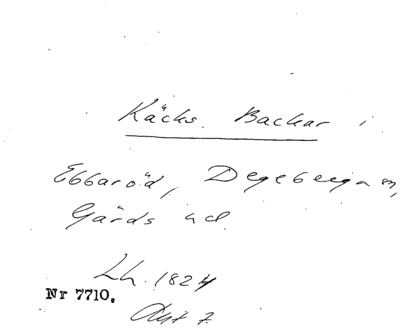 Käcks Backar i
Ebbaröd, Degeberga sn,
Gärds hd
Lh. 1824
Nr 7710.
Akt 7.